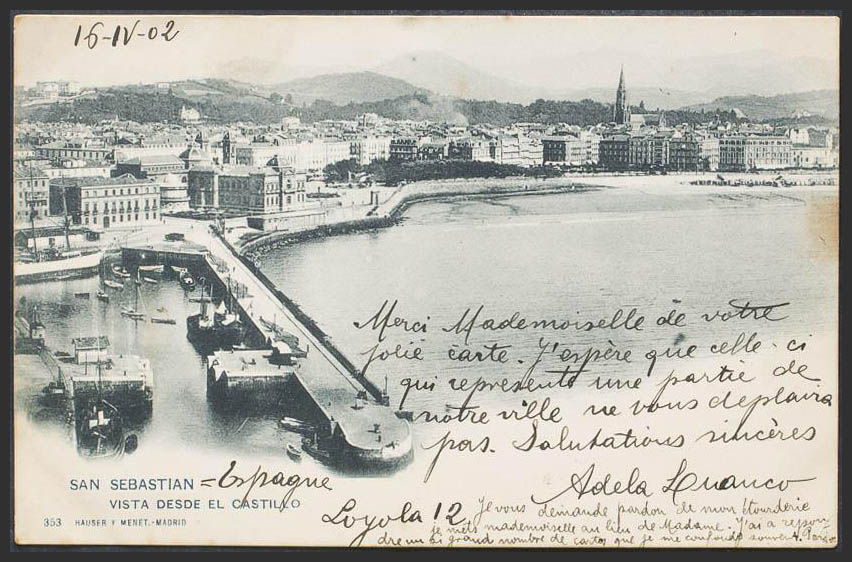 16-IV-02
Merci Mademoiselle de votre
jolie carte. J'espère que celle-ci
qui represente une partie de
nôtre ville ne vous deplaira
pas. Salutations sincères
SAN SEBASTIAN = Espagne
VISTA DESDE EL CASTILLO
Adela
Loyola 12
353 HAUSER Y MENET.-MADRID
Je vous demande pardon de mon étourderie
je mets mademoiselle au lieu de Madame. J'ai a repon-
dre un si grand nombre de cartes que je me confonds souvent.